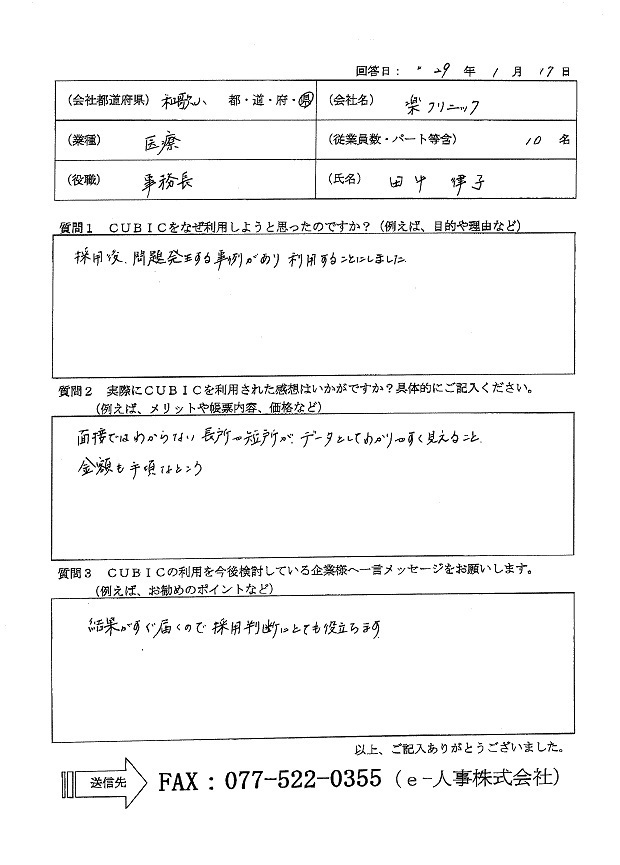 回答日： 29 年 1 月 17 日
（会社都道府県） 和歌山 都・道・府・県
（会社名） 楽クリニック
（業種） 医療
（従業員数・パート等含） 10 名
（役職） 事務長
（氏名） 田中 律子
質問１ ＣＵＢＩＣをなぜ利用しようと思ったのですか？（例えば、目的や理由など）
採用後、問題発生する事例があり 利用することにしました
質問２ 実際にＣＵＢＩＣを利用された感想はいかがですか？具体的にご記入ください。
（例えば、メリットや帳票内容、価格など）
面接ではわからない 長所や短所が、データとしてわかりやすく見えること
金額も手頃なところ
質問３ ＣＵＢＩＣの利用を今後検討している企業様へ一言メッセージをお願いします。
（例えば、お勧めのポイントなど）
結果がすぐ届くので 採用判断にとても役立ちます
以上、ご記入ありがとうございました。
送信先 FAX：077-522-0355（ｅ－人事株式会社）